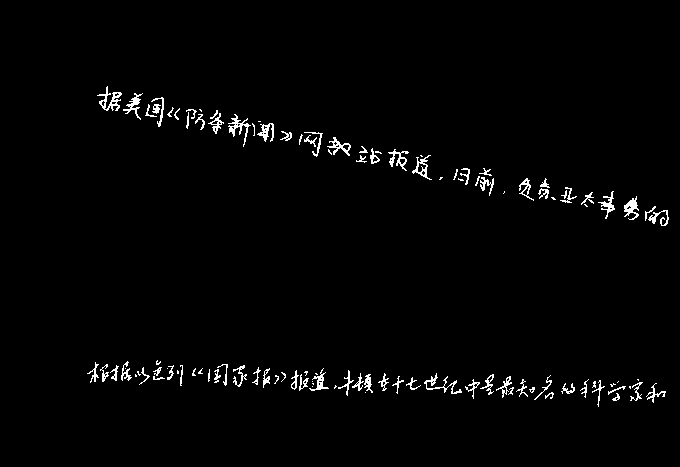 据美国《防务新闻》网站报道,目前,负责亚太事务的
根据以色列《国家报》报道,牛顿在十七世纪中是最知名的科学家和